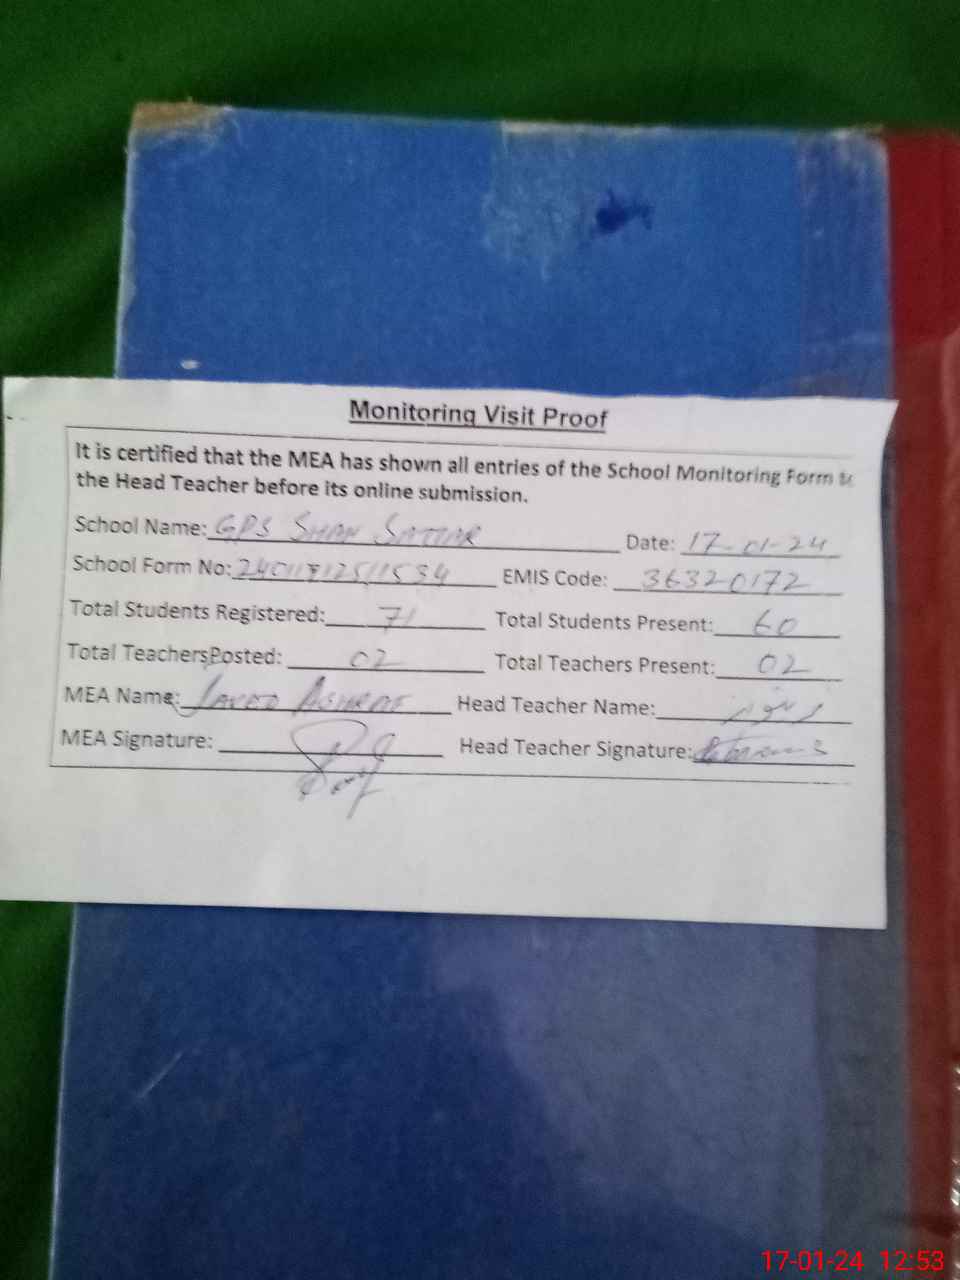 Monitoring Visit Proof
It is certified that the MEA has shown all entries of the School Monitoring Form to
the Head Teacher before its online submission.
School Name: GPS SHAH SATTAR Date: 17-01-24
School Form No: EMIS Code: 36320172
Total Students Registered: 71 Total Students Present: 60
Total TeachersPosted: 02 Total Teachers Present: 02
MEA Name: JAVED ASHRAF Head Teacher Name:
MEA Signature: Head Teacher Signature:
17-01-24 12:53